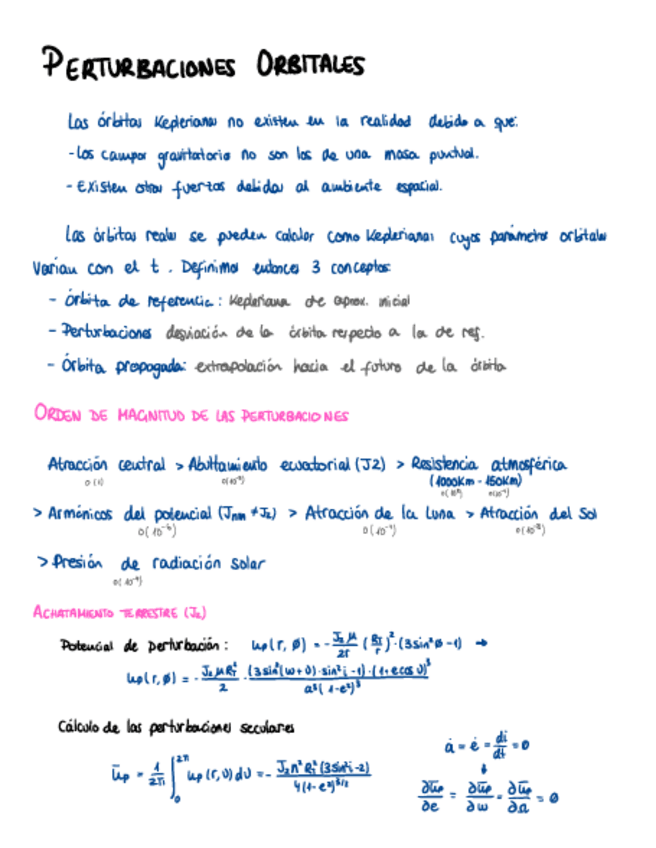 PERTURBACIONES ORBITALES
Las órbitas Keplerianas no existen en la realidad debido a que:
- Los campos gravitatorios no son los de una masa puntual.
- Existen otras fuerzas debidas al ambiente espacial.
Las órbitas reales se pueden calcular como Keplerianas cuyos parámetros orbitales
varían con el t. Definimos entonces 3 conceptos:
- Órbita de referencia: Kepleriana de aprox. inicial
- Perturbaciones desviación de la órbita respecto a la de ref.
- Órbita propagada: extrapolación hacia el futuro de la órbita
ORDEN DE MAGNITUD DE LAS PERTURBACIONES
Atracción central > Abultamiento ecuatorial (J2) > Resistencia atmosférica
O(1) O(10⁻³) (1000Km - 150Km)
> Armónicos del potencial (Jnm ≠ J₂) > Atracción de la Luna > Atracción del Sol
O(10⁻⁶) O(10⁻⁷) O(10⁻⁸)
> Presión de radiación solar
O(10⁻⁹)
ACHATAMIENTO TERRESTRE (J₂)
Potencial de perturbación: up(r, ø) = - J₂μ/2r (R_T/r)² · (3sin²ø - 1) →
up(r, ø) = - J₂μR_T²/2 · (3sin²(ω+υ)·sin²i - 1)·(1+ecosυ)³ / a³(1-e²)³
Cálculo de las perturbaciones seculares
ȧ = ė = di/dt = 0
↓
ūp = 1/2π ∫₀^2π up(r, υ) dυ = - J₂n²R_T²(3sin²i - 2) / 4(1-e²)^3/2
∂ūp/∂e = ∂ūp/∂ω = ∂ūp/∂Ω = 0